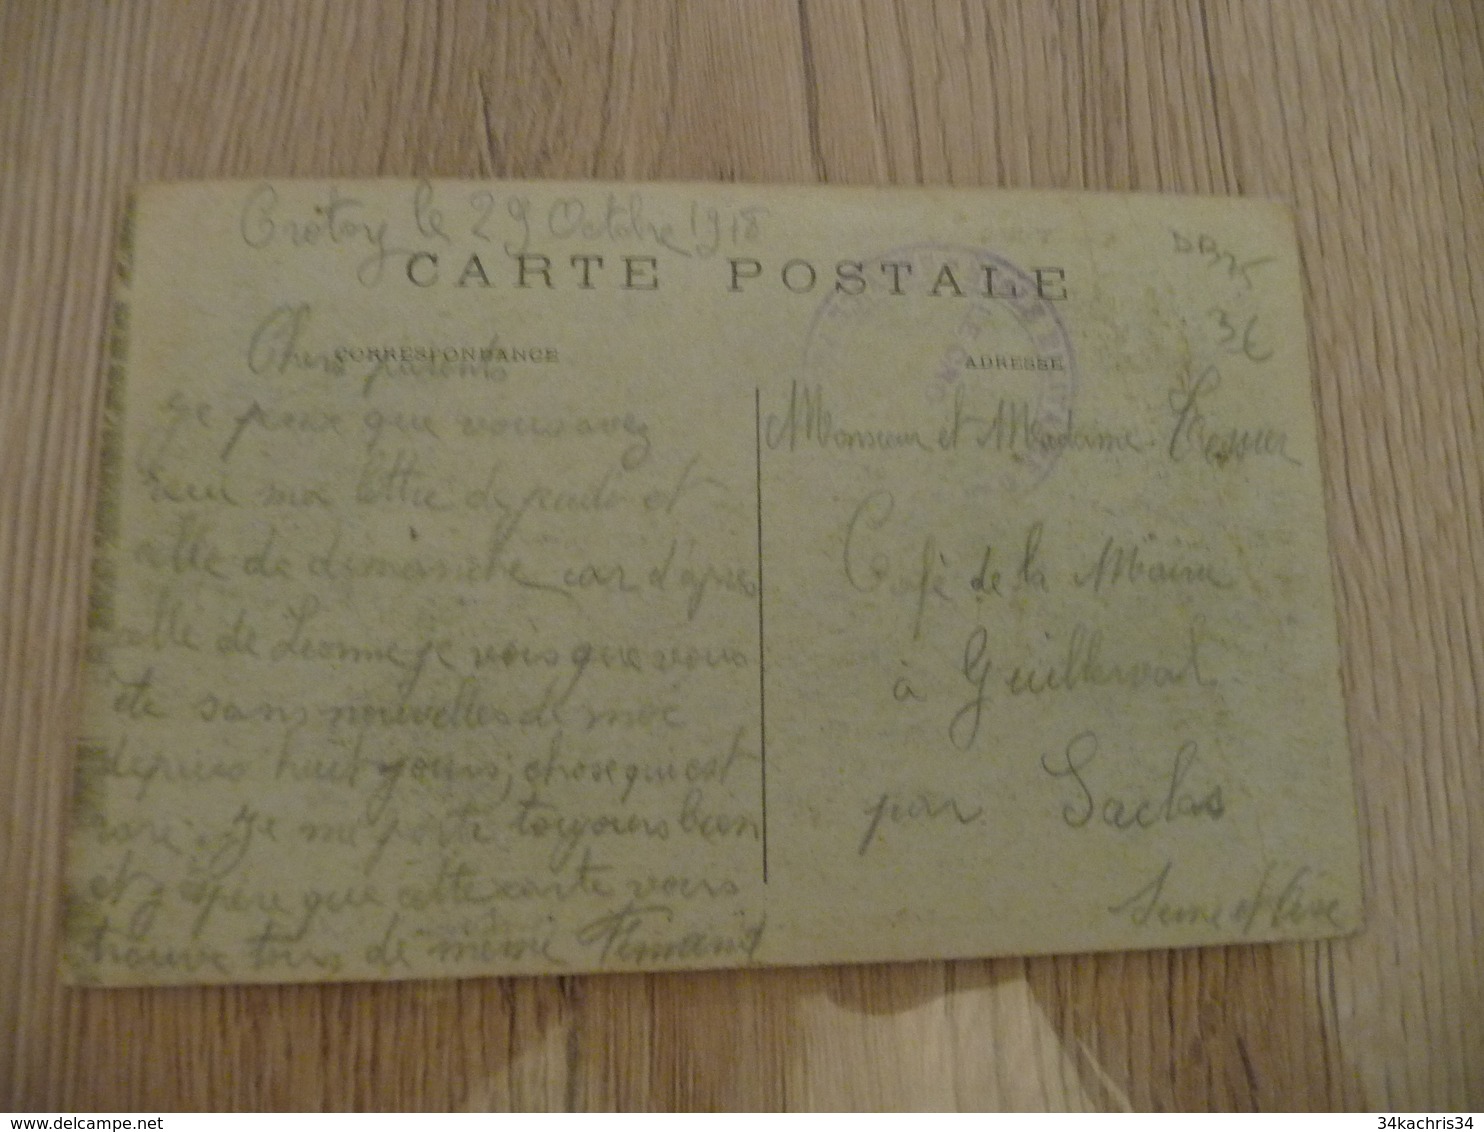 Crotoy le 29 Octobre 1918
CARTE POSTALE
DD325
3€
CORRESPONDANCE
ADRESSE
LE CRO
Chers parents
je pense que vous avez
reçu ma lettre de jeudi et
celle de dimanche car d'après
celle de Leonne je vois que vous
ête sans nouvelles de moi
depuis huit jours, chose qui est
rare. Je me porte toujours bien
et j'éspère que cette carte vous
trouve tous de même Fernand
Monsieur et Madame Tessier
Café de la Mairie
à Guillerval
par Saclas
Seine et Oise
delcampe.net
34kachris34